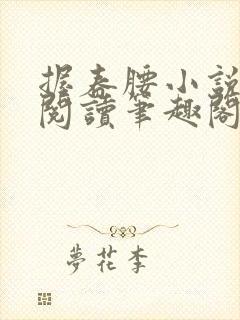 握春腰小說
閱讀筆趣閣
夢花李